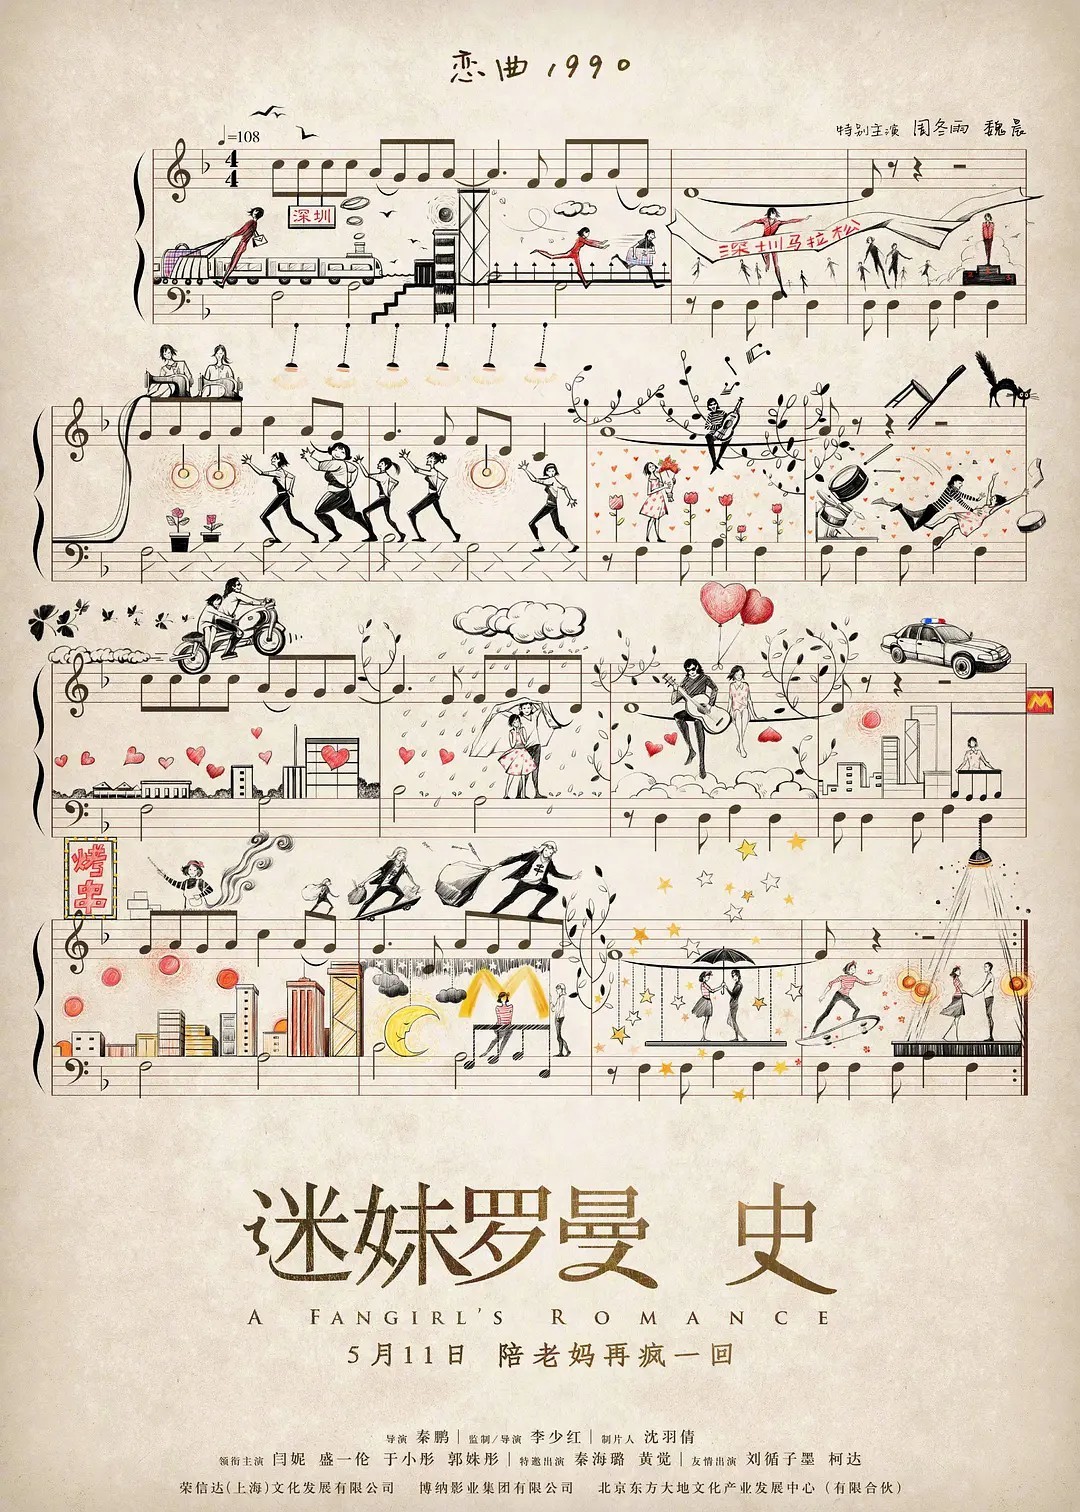 恋曲1990
特别主演 周冬雨 魏晨
♩=108
4
4
深圳
深圳马拉松
M
烤串
迷妹罗曼 史
A FANGIRL'S ROMANCE
5月11日 陪老妈再疯一回
导演 秦鹏 | 监制/导演 李少红 | 制片人 沈羽倩
领衔主演 闫妮 盛一伦 于小彤 郭姝彤 | 特邀出演 秦海璐 黄觉 | 友情出演 刘循子墨 柯达
荣信达(上海)文化发展有限公司 博纳影业集团有限公司 北京东方大地文化产业发展中心(有限合伙)